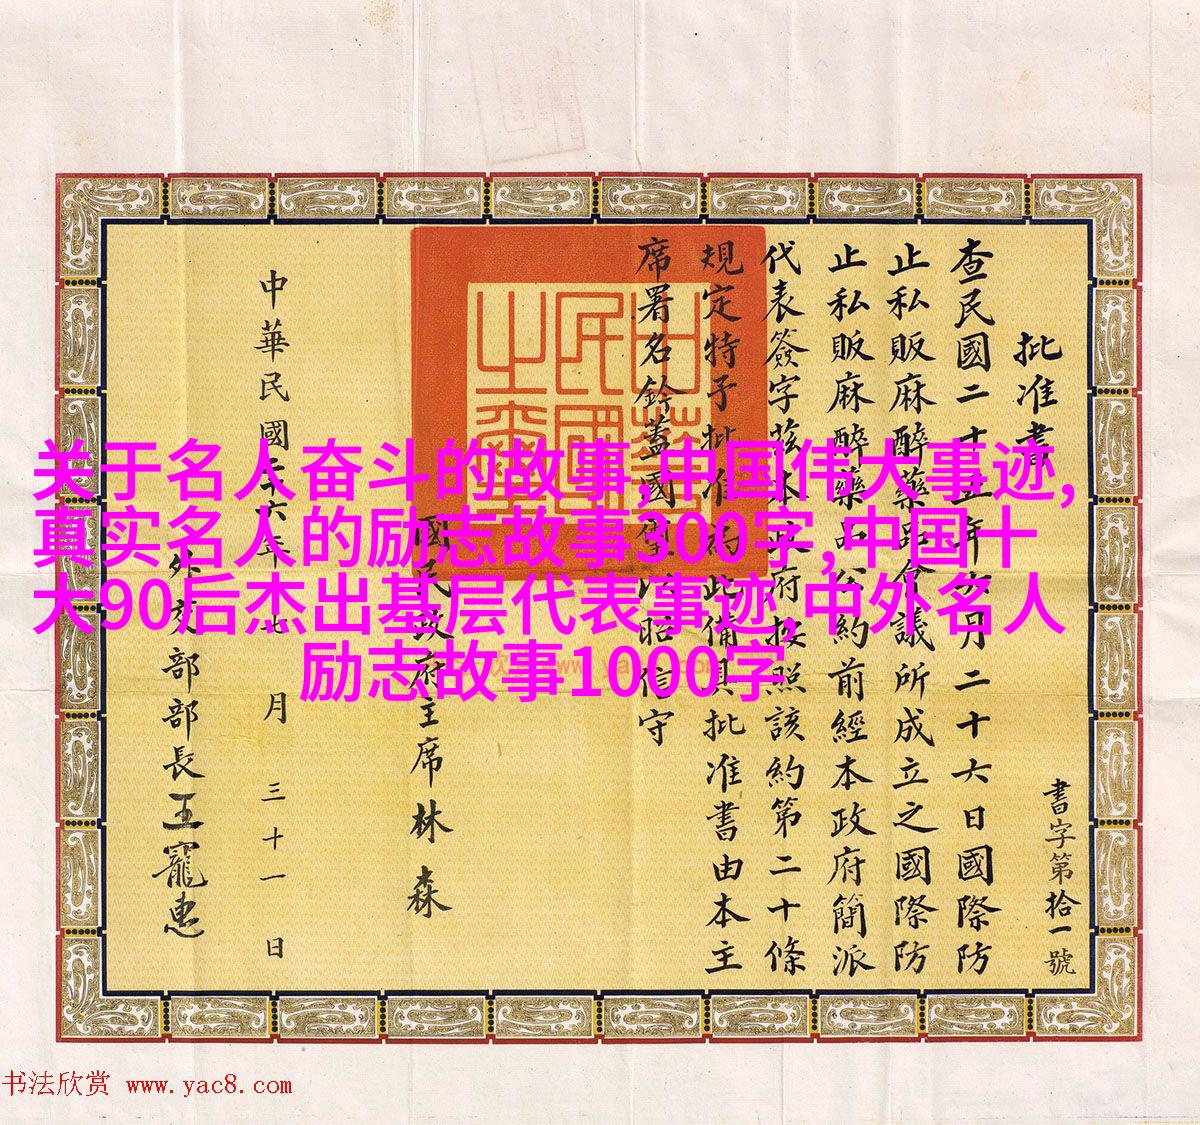 批准書
書字第拾一號
查民國二十五年六月二十六日國際防
止私販麻醉藥品會議所成立之國際防
止私販麻醉藥品公約前經本政府簡派
代表簽字茲本政府按照該約第二十條
規定特予批准為此備具批准書由本主
席署名鈐蓋國璽以昭信守
中華
民國
之璽
國民政府主席林森
中華民國二十六年七月三十一日
外交部部長王寵惠
关于名人奋斗的故事,中国伟大事迹,
真实名人的励志故事300字,中国十
大90后杰出基层代表事迹,中外名人
励志故事1000字
书法欣赏 www.yac8.com